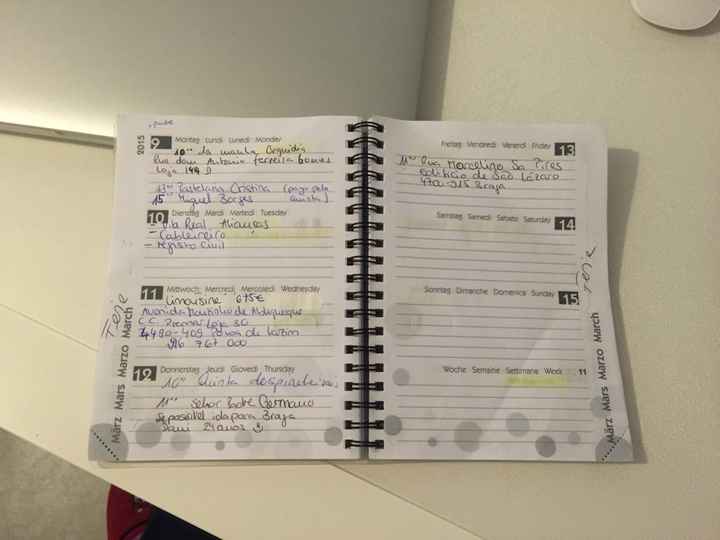 2015
9 Montag Lundi Lunedì Monday
10 da manha
Rua dom Antonio ferreira Gomes
Loja 144 D
Cristina (pago pela
15 Miguel Borges
10 Dienstag Mardi Martedì Tuesday
Real Alianças
- Cableireiro
- Registo Civil
11 Mittwoch Mercredi Mercoledì Wednesday
Limousine 675€
Avenida Mouzinho de Albuquerque
C.C. Loja 30
4490-409 Povoa de
767 000
12 Donnerstag Jeudi Giovedì Thursday
Quinta
11 Senhor Padre Germano
Se possivel ida para Braga
24 anos
März Mars Marzo March
Freitag Vendredi Venerdì Friday 13
11 Rua Marcelino Sa Pires
Edificio de São Lázaro
Braga
Samstag Samedi Sabato Saturday 14
Sonntag Dimanche Domenica Sunday 15
Woche Semaine Settimana Week 11
März Mars Marzo March